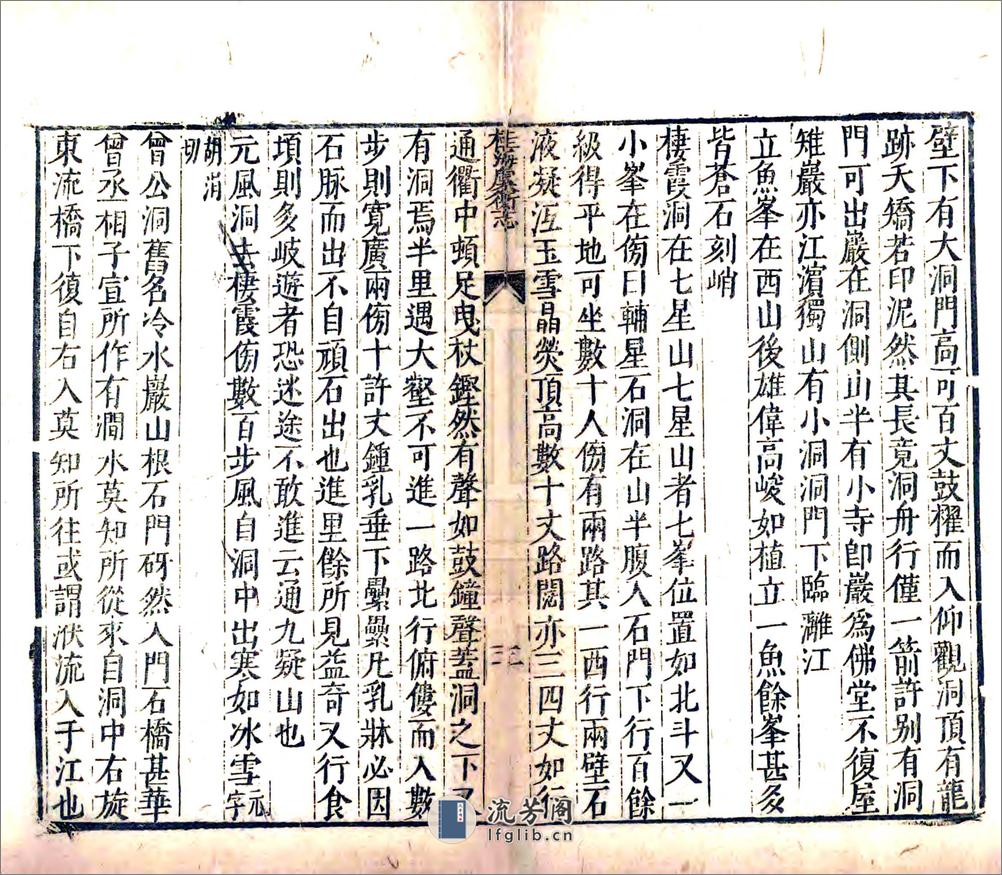 壁下有大洞門高可百丈鼓櫂而入仰觀洞頂有龍
跡夭矯若印泥然其長竟洞舟行僅一箭許别有洞
門可出巖在洞側山半有小寺卽巖爲佛堂不復屋
雉巖亦江濱獨山有小洞洞門下臨灕江
立魚峯在西山後雄偉高峻如植立一魚餘峯甚多
皆蒼石刻峭
棲霞洞在七星山七星山者七峯位置如北斗又一
小峯在傍曰輔星石洞在山半腹入石門下行百餘
級得平地可坐數十人傍有兩路其一西行兩壁石
液凝沍玉雪晶熒頂高數十丈路闊亦三四丈如行
桂海虞衡志
三
通衢中頓足曳杖鏗然有聲如鼓鐘聲蓋洞之下又
有洞焉半里遇大壑不可進一路北行俯僂而入數
步則寬廣兩傍十許丈鍾乳垂下纍纍凡乳牀必因
石脉而出不自頑石出也進里餘所見益奇又行食
頃則多岐遊者恐迷途不敢進云通九疑山也
元風洞去棲霞傍數百步風自洞中出寒如冰雪元字
胡涓切
曾公洞舊名冷水巖山根石門砑然入門石橋甚華
曾丞相子宣所作有澗水莫知所從來自洞中右旋
東流橋下復自右入莫知所往或謂洑流入于江也
流芳阁
lfglib.cn